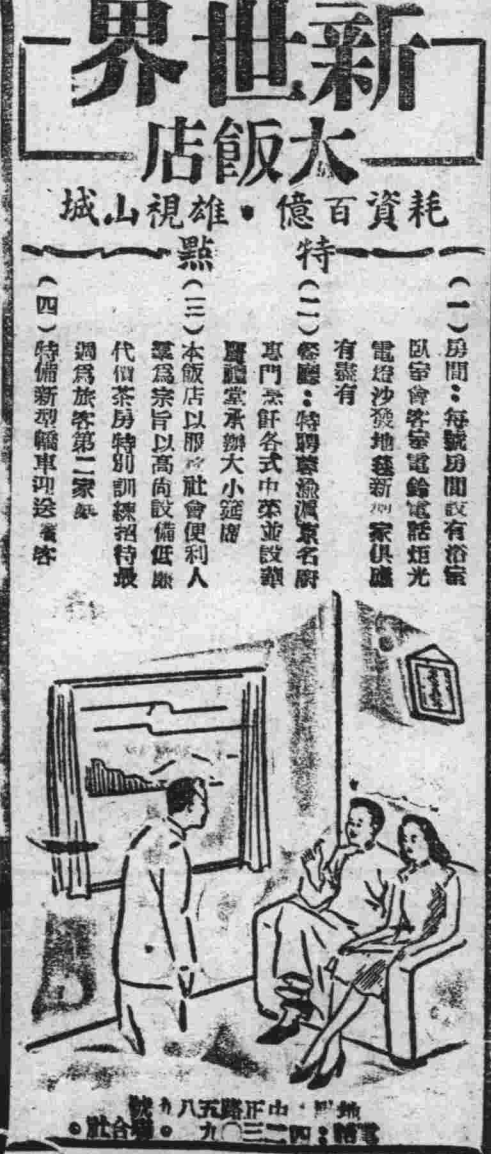 新世界
大飯店
耗資百億・雄視山城
特點
(一)房間:每號房間設有浴室
臥室會客室電鈴電話炬光
電燈沙發地毯新型家俱應
有盡有
(二)餐廳:特聘蓉渝滬京名廚
專門烹飪各式中菜並設華
麗禮堂承辦大小筵席
(三)本飯店以服務社會便利人
羣為宗旨以高尚設備低廉
代價茶房特別訓練招待最
週為旅客第二家
(四)特備新型轎車迎送旅客
地點:中正路五八九號
電話:四二三〇九。聯合社。